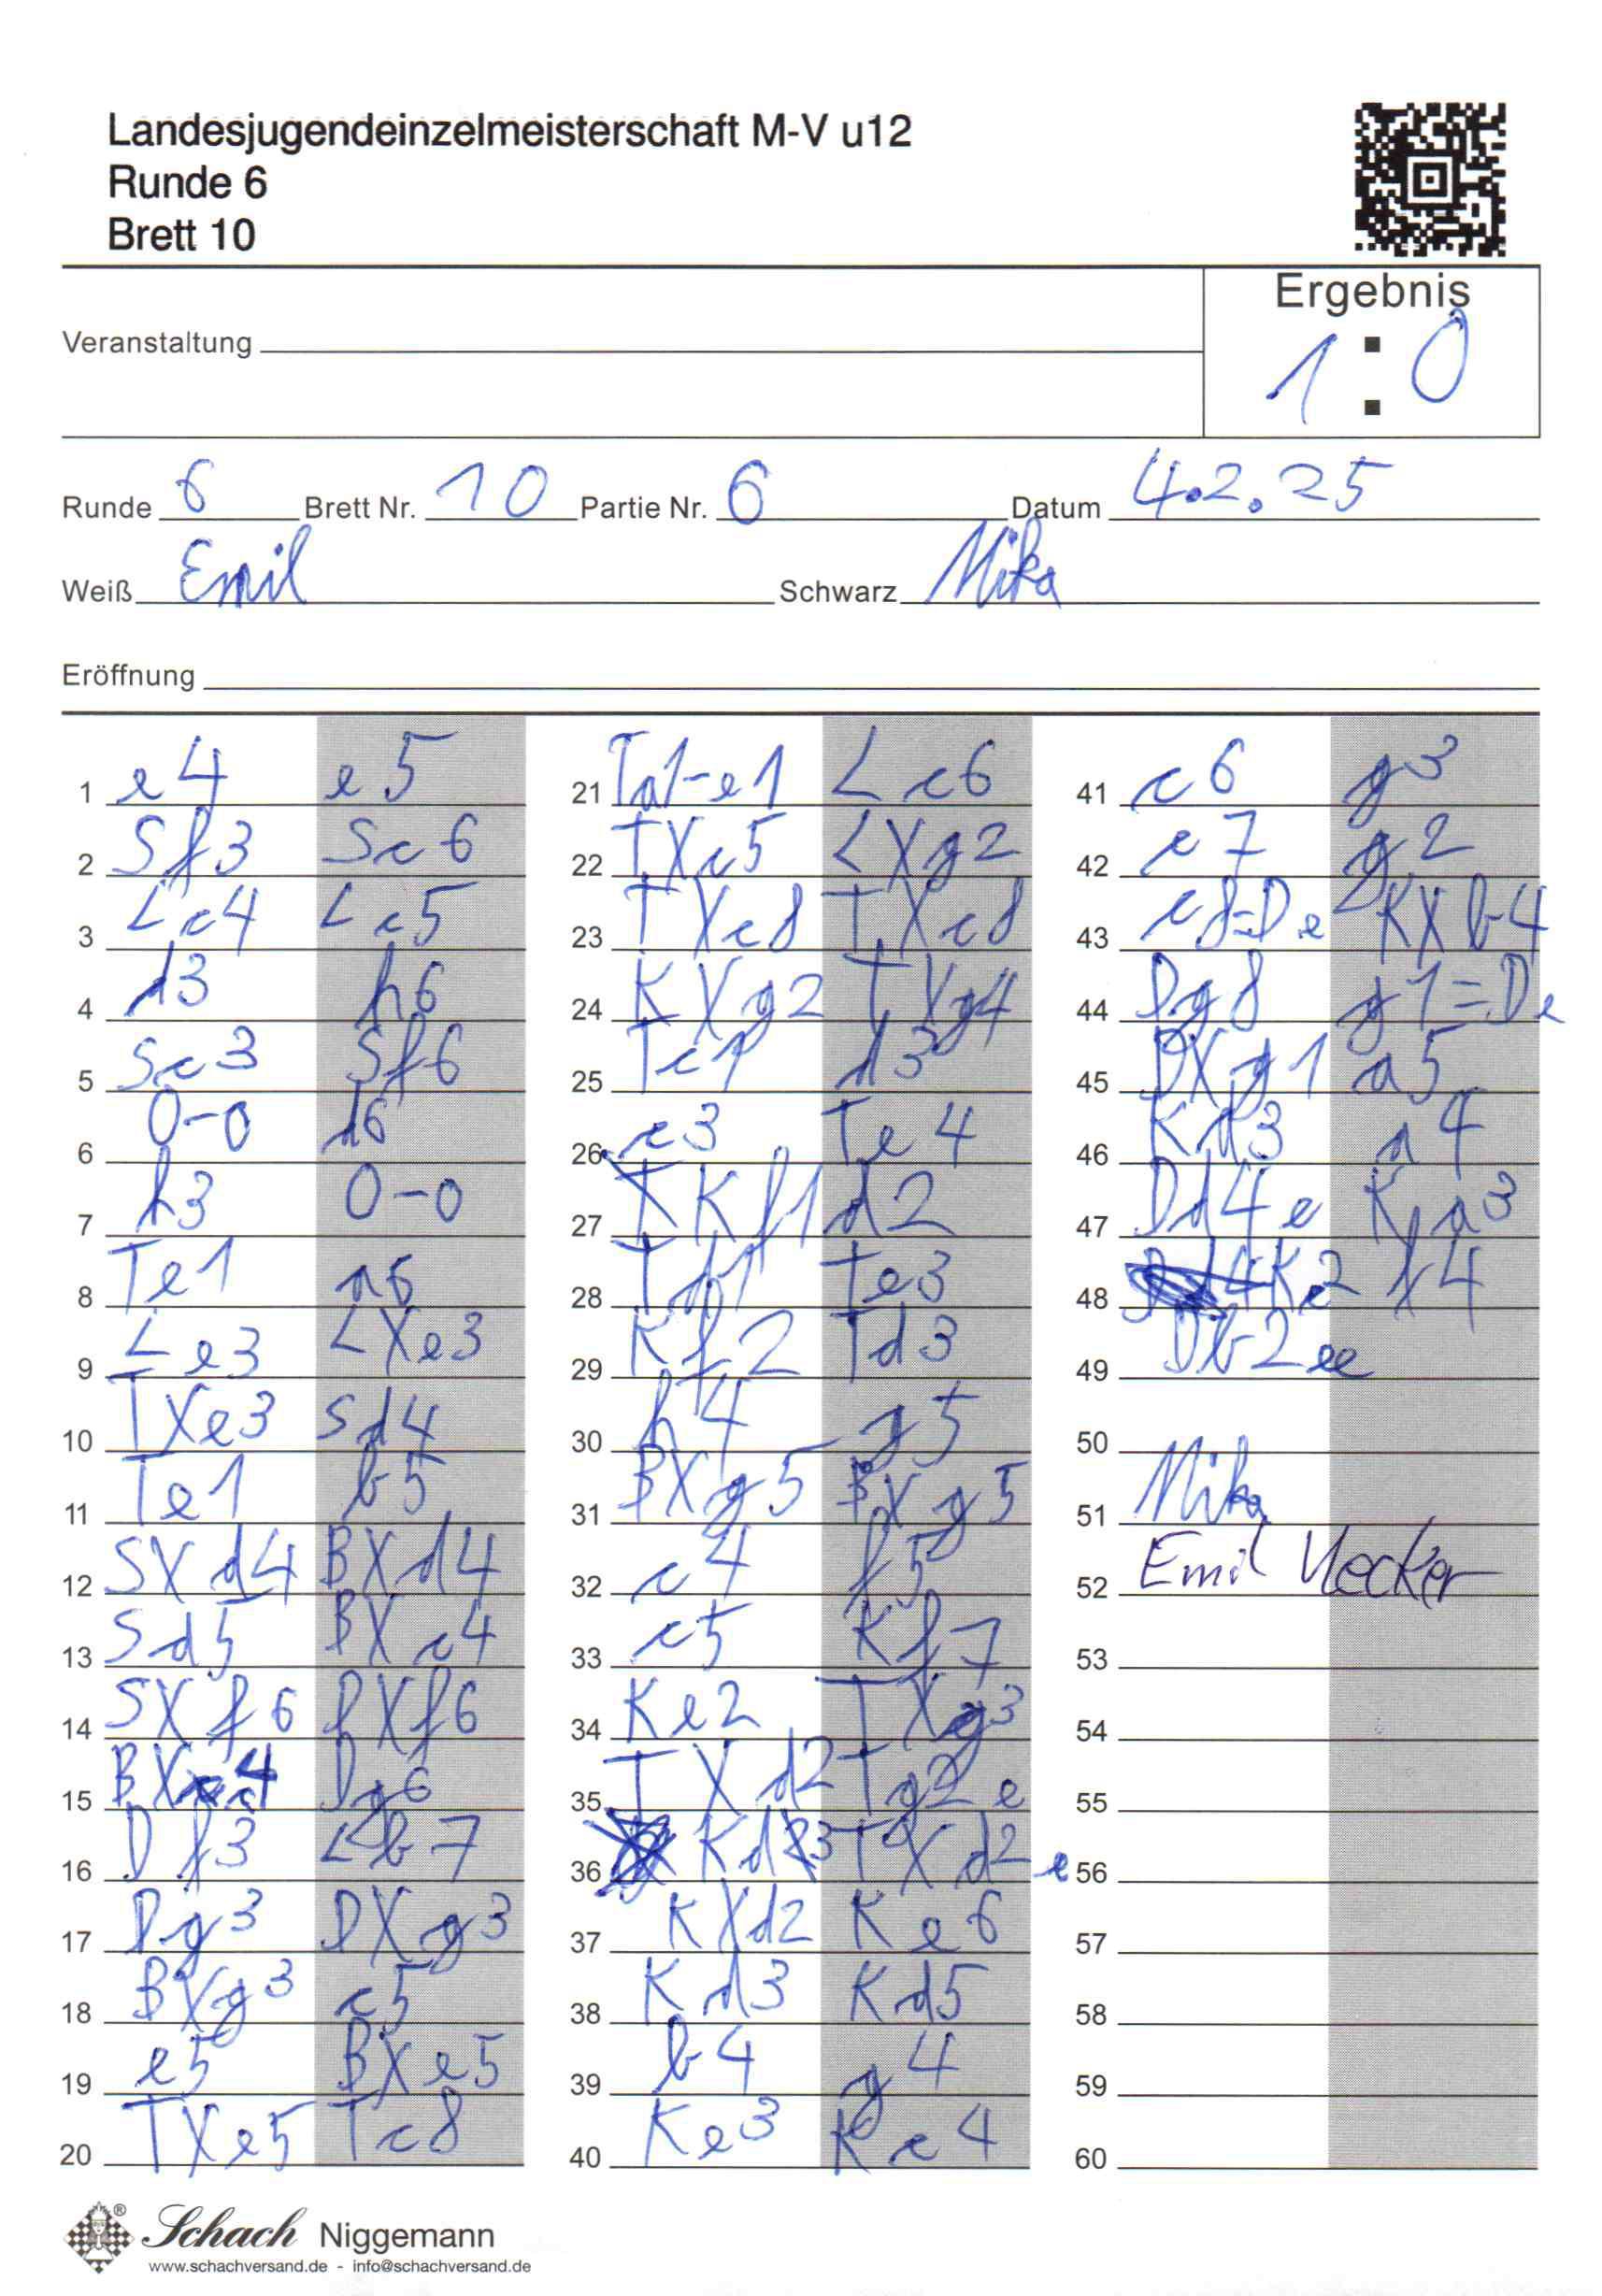 Landesjugendeinzelmeisterschaft M-V u12
Runde 6
Brett 10
Ergebnis
1 : 0
Veranstaltung
Runde 6 Brett Nr. 10 Partie Nr. 6 Datum 4.2.25
Weiß Emil Schwarz Mika
Eröffnung
1 e4 e5
2 Sf3 Sc6
3 Lc4 Lc5
4 d3 h6
5 Sc3 Sf6
6 0-0 d6
7 h3 0-0
8 Te1 a6
9 Le3 LXe3
10 TXe3 Sd4
11 Te1 b5
12 SXd4 BXd4
13 Sd5 BXc4
14 SXf6 DXf6
15 BXc4 Dg6
16 Df3 Lb7
17 Dg3 DXg3
18 BXg3 c5
19 e5 BXe5
20 TXe5 Tc8
21 Ta1-e1 Lc6
22 TXc5 LXg2
23 TXc8 TXc8
24 KXg2 TXg4
25 Tc1 d3
26 c3 Te4
27 Kf1 d2
28 Td1 Te3
29 Kf2 Td3
30 h4 g5
31 BXg5 BXg5
32 c4 f5
33 c5 Kf7
34 Ke2 TXg3
35 TXd2 Tg2e
36 Kd3 TXd2e
37 KXd2 Ke6
38 Kd3 Kd5
39 b4 g4
40 Ke3 Kc4
41 c6 g3
42 c7 g2
43 c8=De KXb4
44 Dg8 g1=De
45 DXg1 a5
46 Kd3 a4
47 Dd4e Ka3
48 Kc2 f4
49 Db2ee
50
51 Mika
52 Emil Uecker
53
54
55
56
57
58
59
60
Schach Niggemann
www.schachversand.de - info@schachversand.de